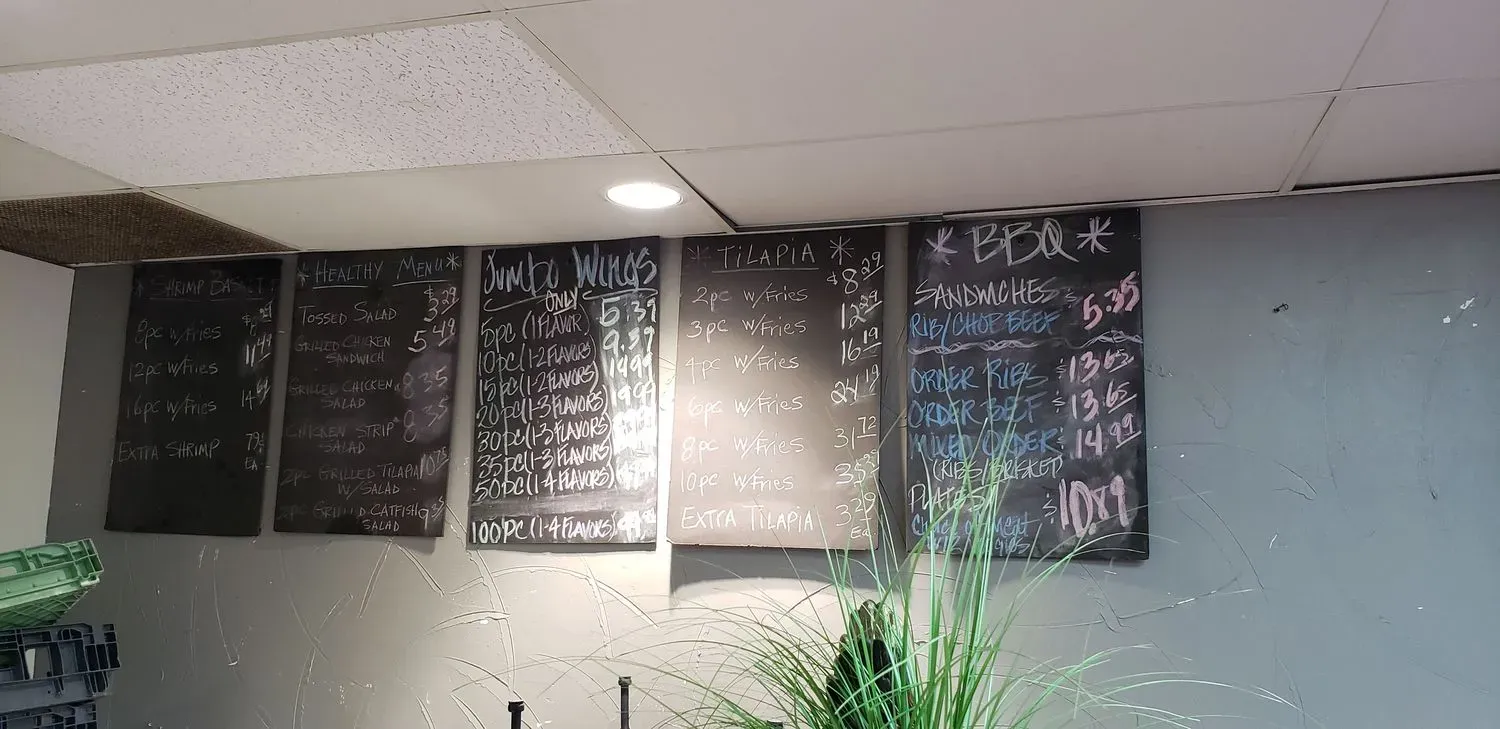 SHRIMP BASKET
8pc w/Fries
12pc w/Fries 11.49
16pc w/Fries 14.64
EXTRA SHRIMP 79¢
EA
* HEALTHY MENU *
TOSSED SALAD $3.29
GRILLED CHICKEN 5.49
SANDWICH
GRILLED CHICKEN 8.35
SALAD
CHICKEN STRIP 8.35
SALAD
2pc GRILLED TILAPIA
W/SALAD
GRILLED CATFISH
SALAD
JUMBO WINGS
ONLY
5pc (1 FLAVOR) 5.39
10pc (1-2 FLAVORS) 9.39
15pc (1-2 FLAVORS) 14.99
20pc (1-3 FLAVORS) 19.99
30pc (1-3 FLAVORS)
35pc (1-3 FLAVORS)
50pc (1-4 FLAVORS)
100pc (1-4 FLAVORS)
* TILAPIA *
2pc w/Fries $8.29
3pc w/Fries 12.29
4pc w/Fries 16.19
6pc w/Fries 24.19
8pc w/Fries 31.72
10pc w/Fries
EXTRA TILAPIA 3.29
Ea.
* BBQ *
SANDWICHES $5.35
RIB/CHOP BEEF
ORDER RIBS $13.65
ORDER BEEF $13.65
MIXED ORDER $14.99
PLATES $10.89